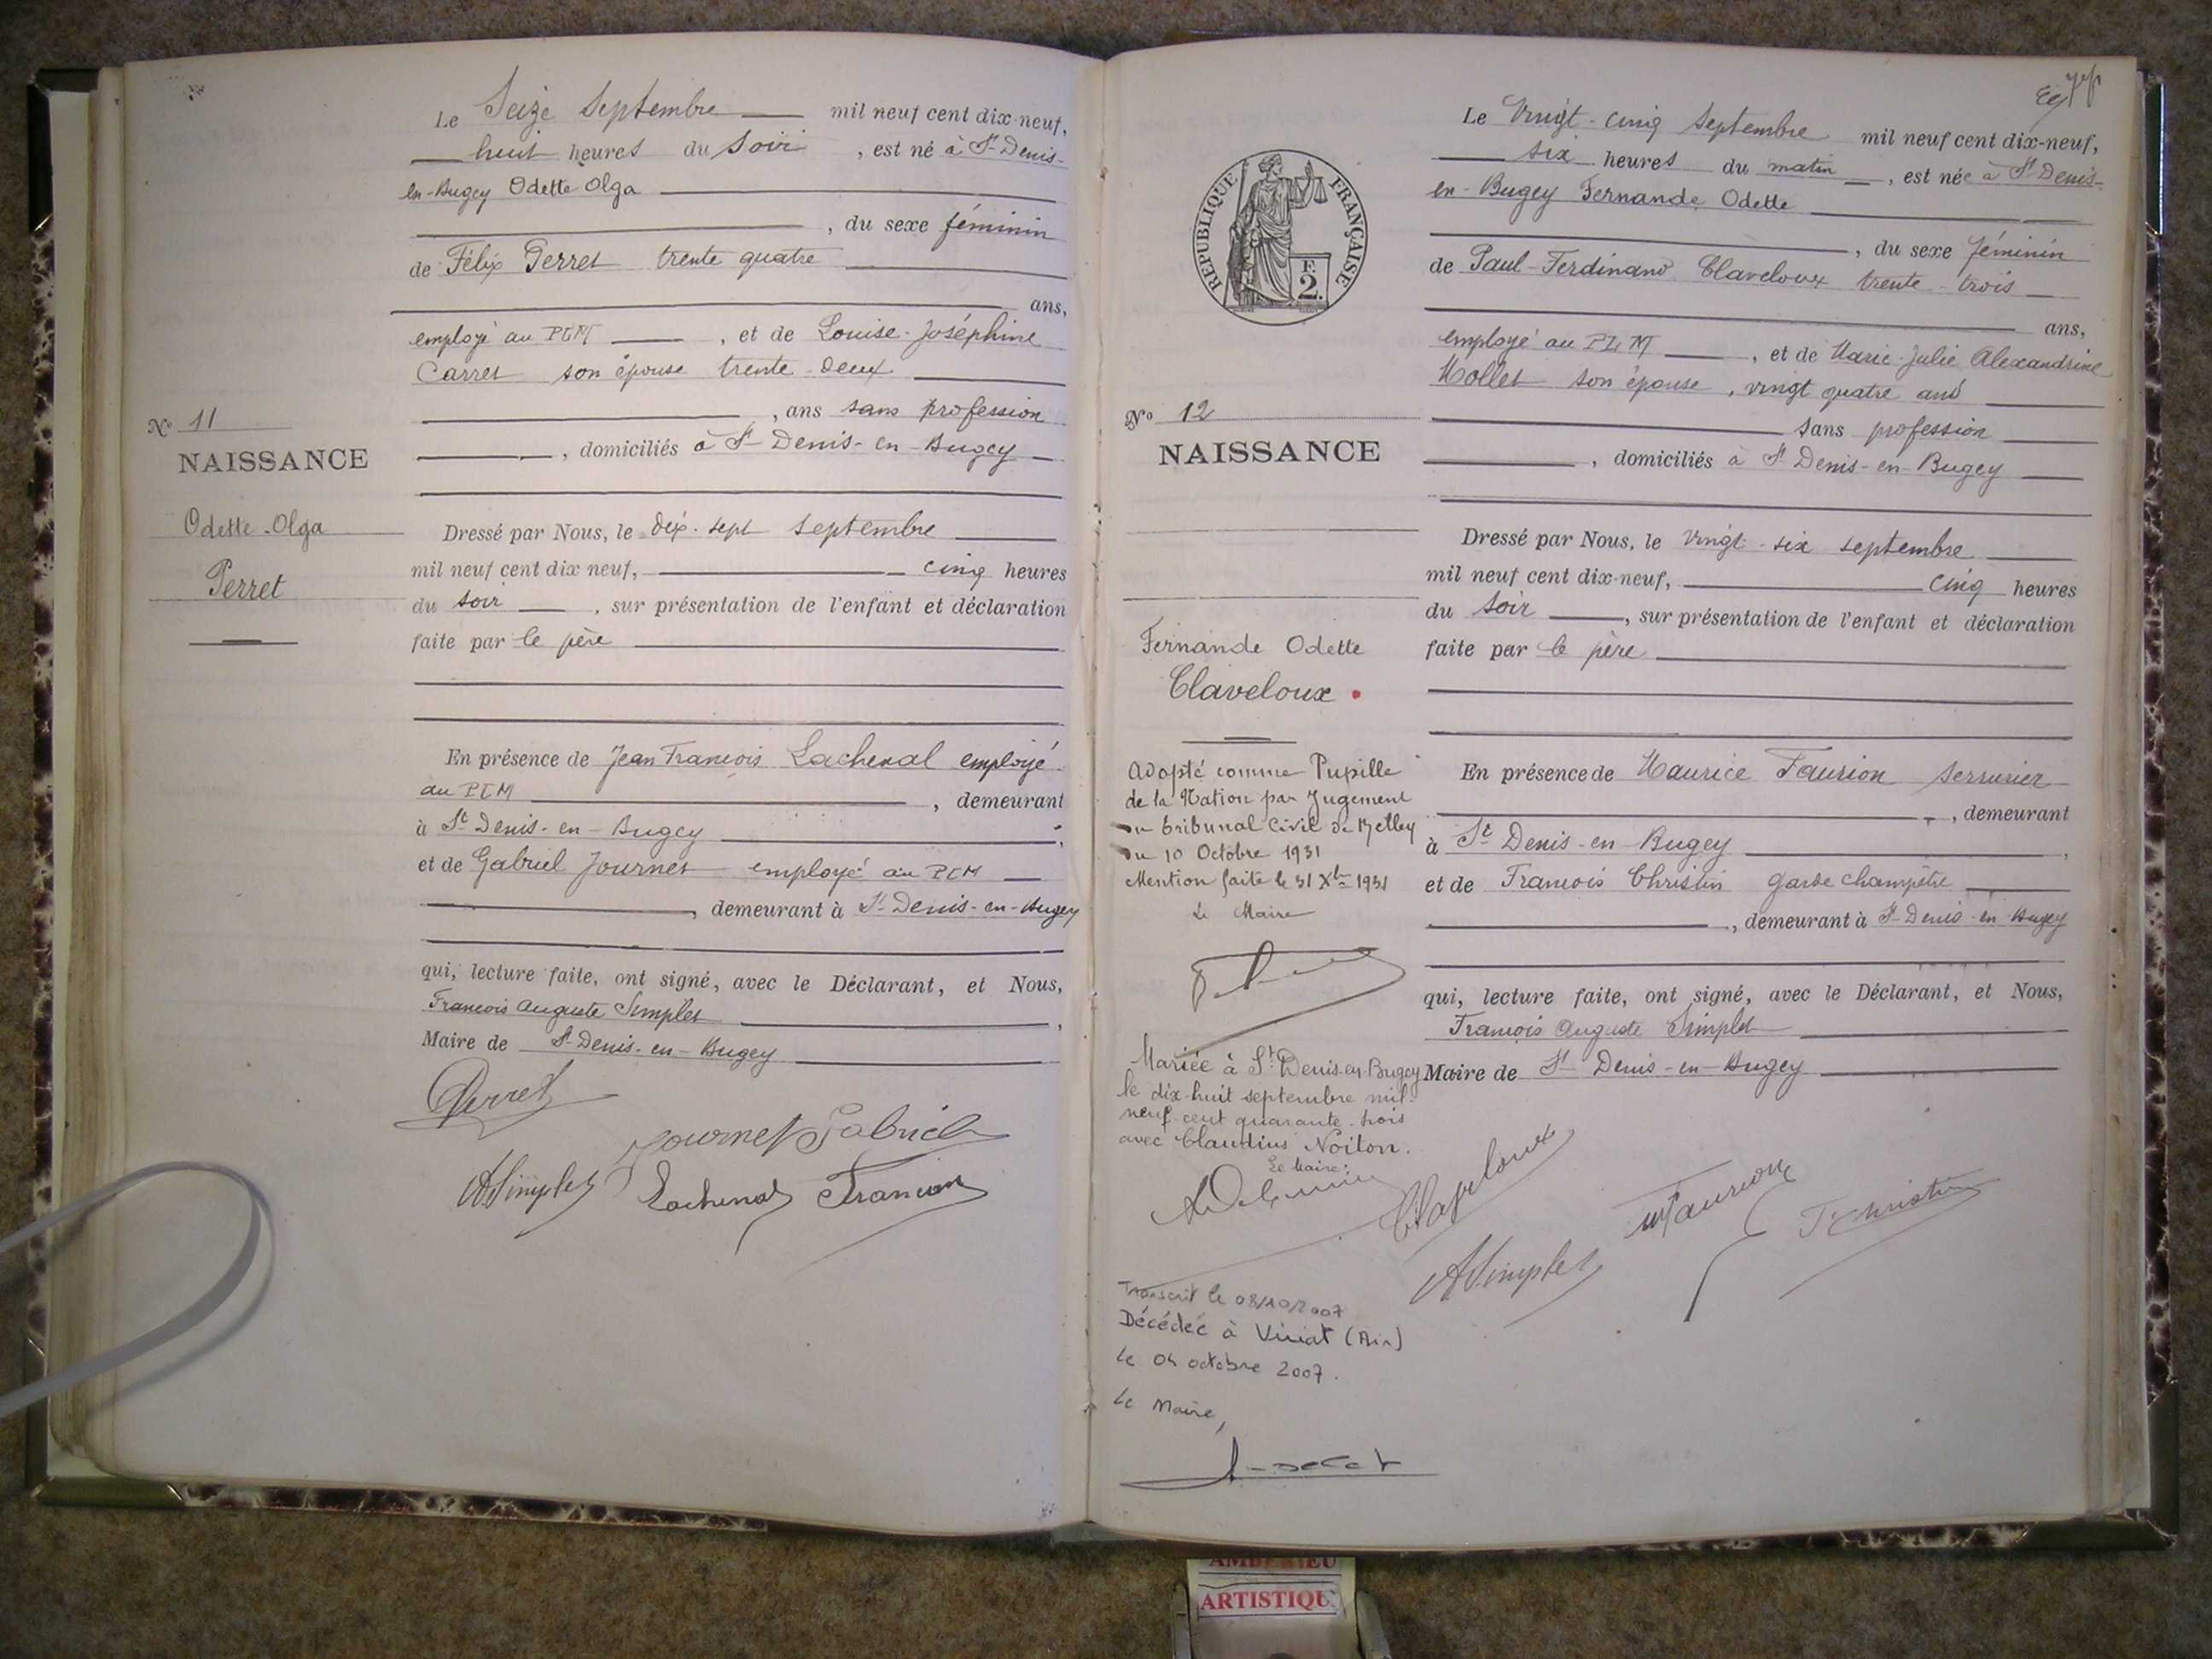 Le Seize Septembre mil neuf cent dix-neuf,
huit heures du soir, est né à St Denis-
en-Bugey Odette Olga
, du sexe féminin
de Félix Perret trente quatre
ans,
employé au PLM, et de Louise-Joséphine
Carret son épouse trente-deux
, ans sans profession
, domiciliés à St Denis-en-Bugey
No 11
NAISSANCE
Odette-Olga
Perret
Dressé par Nous, le dix-sept septembre
mil neuf cent dix neuf, cinq heures
du soir, sur présentation de l'enfant et déclaration
faite par le père
En présence de Jean François Lachenal employé
au PLM, demeurant
à St Denis-en-Bugey,
et de Gabriel Journet employé au PLM
, demeurant à St Denis-en-Bugey
qui, lecture faite, ont signé, avec le Déclarant, et Nous,
François Auguste Simplet,
Maire de St Denis-en-Bugey
Perret
Journet Gabriel
ASimplet Lachenal François
Le Vingt-cinq Septembre mil neuf cent dix-neuf,
six heures du matin, est née à St Denis-
en-Bugey Fernande Odette
, du sexe féminin
de Paul-Ferdinand Claveloux trente-trois
ans,
employé au PLM, et de Marie-Julie Alexandrine
Mollet son épouse, vingt quatre ans
sans profession
, domiciliés à St Denis-en-Bugey
REPUBLIQUE FRANÇAISE
F.
2.
No 12
NAISSANCE
Fernande Odette
Claveloux
Dressé par Nous, le vingt-six septembre
mil neuf cent dix-neuf, cinq heures
du soir, sur présentation de l'enfant et déclaration
faite par le père
En présence de Maurice Faurion serrurier
, demeurant
à St Denis-en-Bugey,
et de François Christin garde champêtre
, demeurant à St Denis-en-Bugey
qui, lecture faite, ont signé, avec le Déclarant, et Nous,
François Auguste Simplet
Maire de St Denis-en-Bugey
Adopté comme Pupille
de la Nation par Jugement
du tribunal Civil de Belley
du 10 Octobre 1931
Mention faite le 31 Xbre 1931
Le Maire
Mariée à St Denis-en-Bugey
le dix-huit septembre mil
neuf cent quarante-trois
avec Claudius Noiton.
Le Maire:
Claveloux
MFaurion
FChristin
ASimplet
Transcrit le 08/10/2007
Décédée à Viriat (Ain)
le 04 octobre 2007.
Le Maire,
AMBERIEU
ARTISTIQU